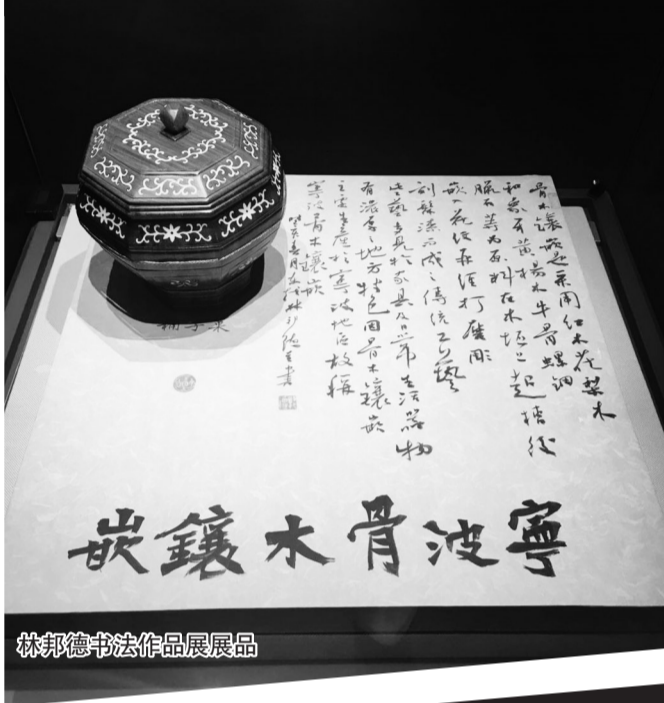 骨木鑲嵌是采用红木花梨木
和象牙黄楊木牛骨螺鈿
腊石等为原料在木坯上起槽後
嵌入花纹再经打磨彫
刻髹漆而成之傳统工藝
此藝多見於家具及日常生活器物
有濃厚之地方特色因骨木鑲嵌
主要生產於寧波地区故稱
寧波骨木鑲嵌
林邦德書
寧波骨木鑲嵌
林邦德书法作品展展品